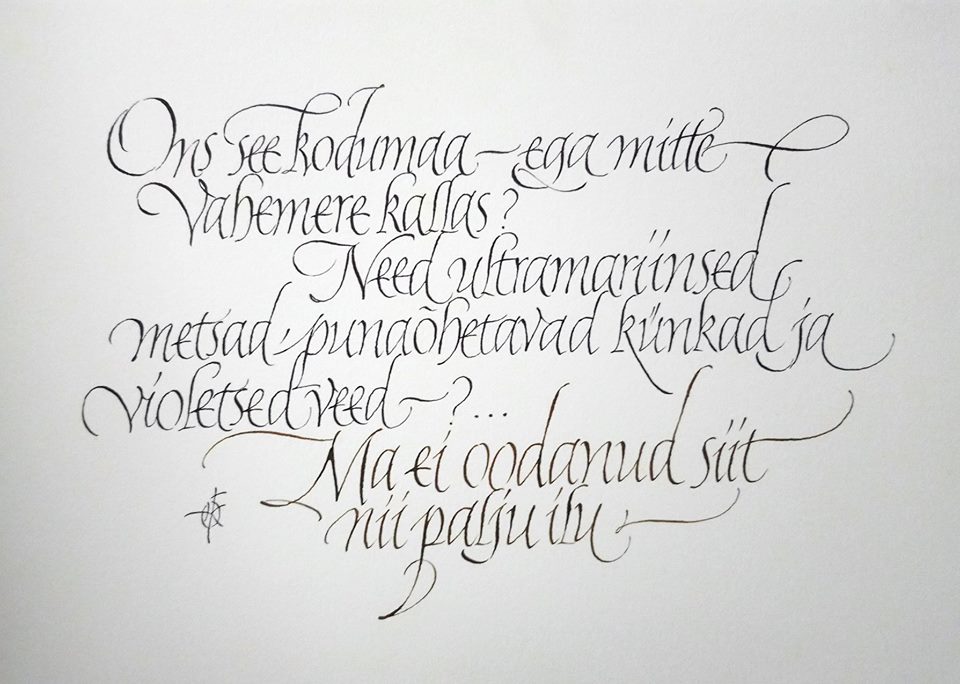 Ons see kodumaa – ega mitte
Vahemere kallas?
Need ultramariinsed
metsad, punaõhetavad künkad ja
violetsed veed – ?...
Ma ei oodanud siit
nii palju ilu